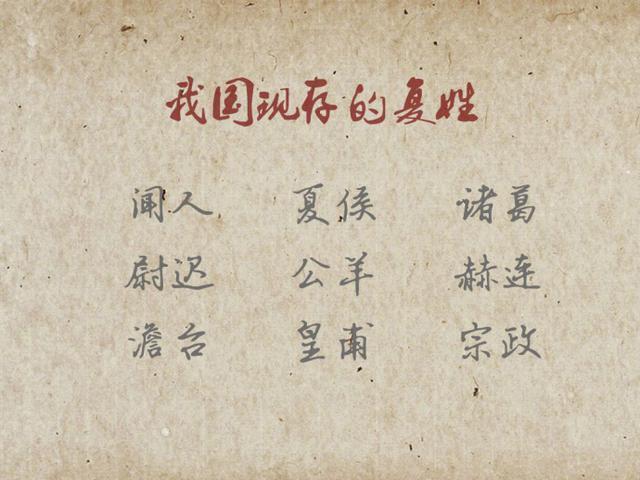 我国现存的复姓
闻人 夏侯 诸葛
尉迟 公羊 赫连
澹台 皇甫 宗政